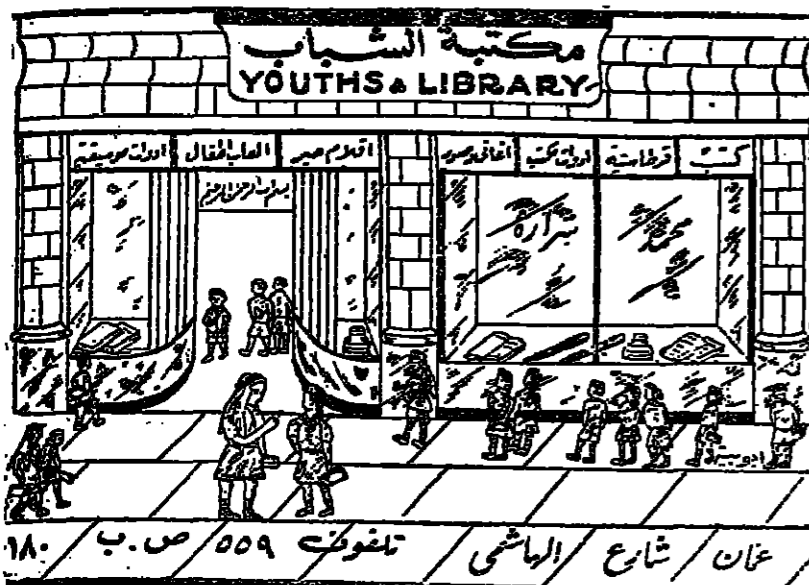 مكتبة الشباب
YOUTHS & LIBRARY
كتب قرطاسية ادوات مكتبية اغاني وصور اقلام حبر العاب اطفال ادوات موسيقية
بسم الله الرحمن الرحيم
محمد شرارة
ابو بيبرو
عمان شارع الهاشمي تلفون ٥٥٩ ص.ب ١٨٠